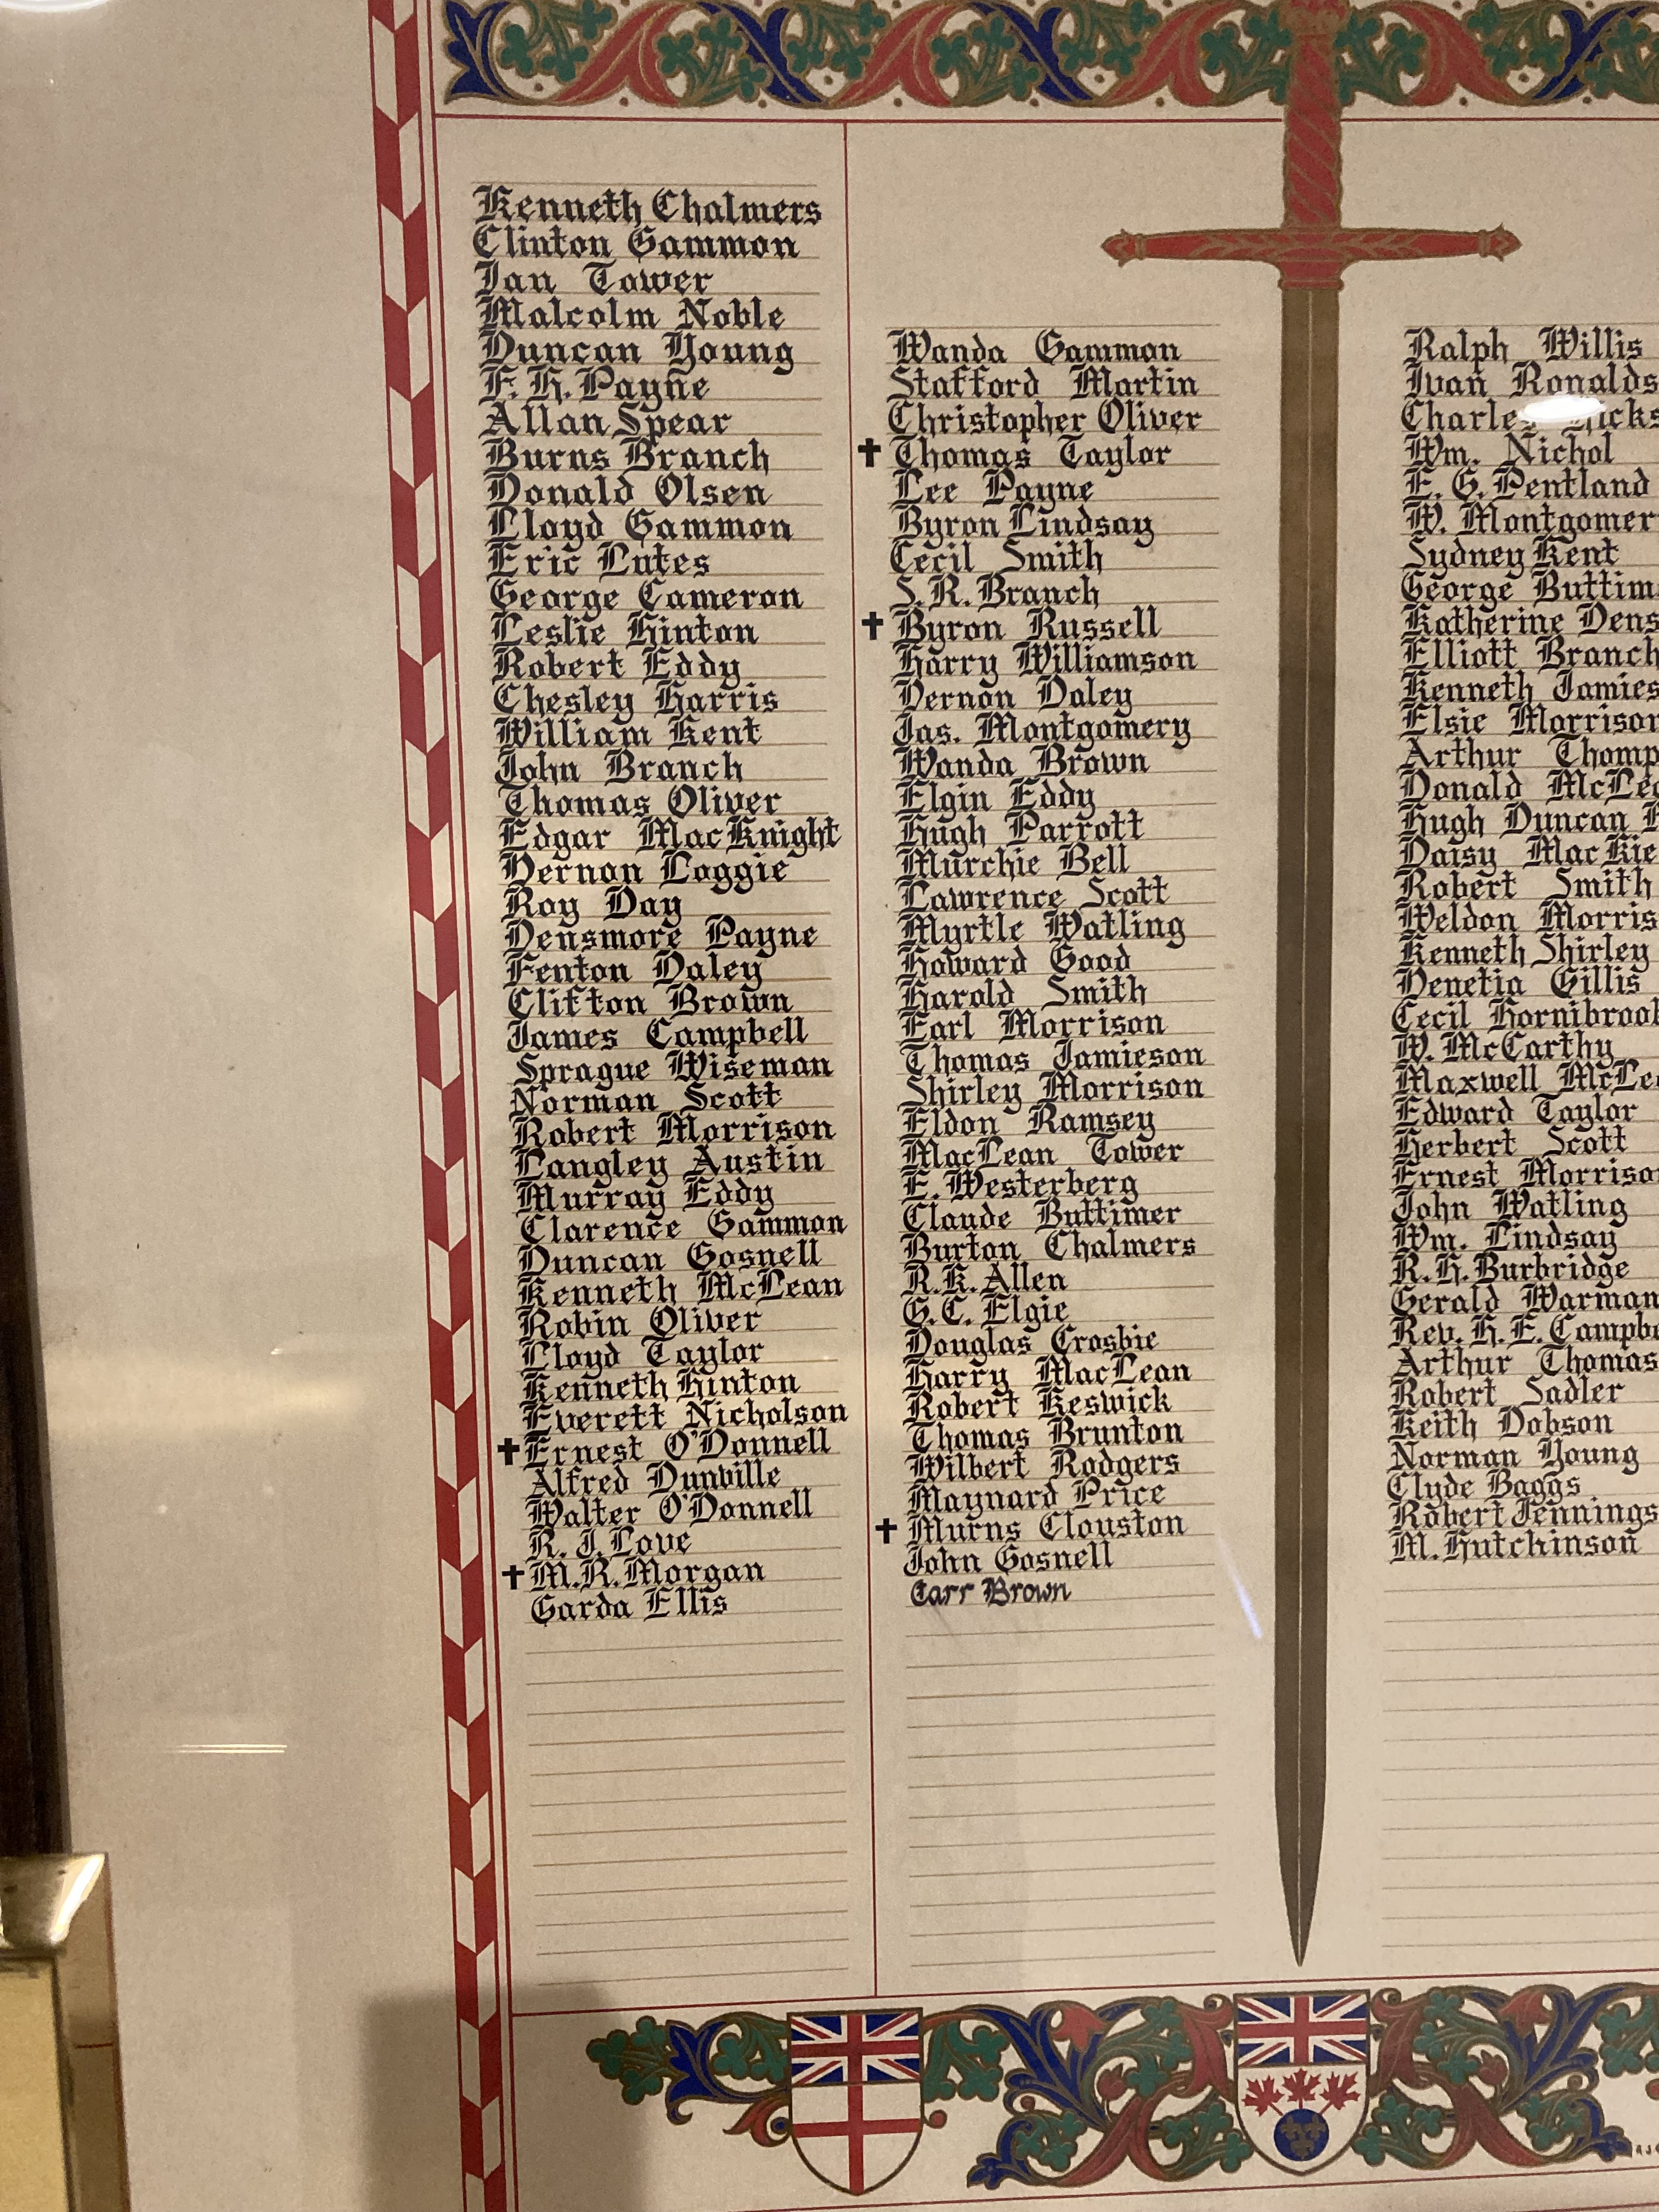 Kenneth Chalmers
Clinton Gammon
Ian Tower
Malcolm Noble
Duncan Young
F. H. Payne
Allan Spear
Burns Branch
Donald Olsen
Lloyd Gammon
Eric Lutes
George Cameron
Leslie Hinton
Robert Eddy
Chesley Harris
William Kent
John Branch
Thomas Oliver
Edgar MacKnight
Vernon Loggie
Roy Day
Densmore Payne
Fenton Daley
Clifton Brown
James Campbell
Sprague Wiseman
Norman Scott
Robert Morrison
Langley Austin
Murray Eddy
Clarence Gammon
Duncan Gosnell
Kenneth McLean
Robin Oliver
Lloyd Taylor
Kenneth Hinton
Everett Nicholson
✝ Ernest O'Donnell
Alfred Dunville
Walter O'Donnell
R. J. Love
✝ M. R. Morgan
Garda Ellis
Wanda Gammon
Stafford Martin
Christopher Oliver
✝ Thomas Taylor
Lee Payne
Byron Lindsay
Cecil Smith
S. R. Branch
✝ Byron Russell
Harry Williamson
Vernon Daley
Jas. Montgomery
Wanda Brown
Elgin Eddy
Hugh Parrott
Murchie Bell
Lawrence Scott
Myrtle Watling
Howard Good
Harold Smith
Earl Morrison
Thomas Jamieson
Shirley Morrison
Eldon Ramsey
MacLean Tower
E. Westerberg
Claude Buttimer
Burton Chalmers
R. K. Allen
G. C. Elgie
Douglas Crosbie
Harry MacLean
Robert Keswick
Thomas Brunton
Wilbert Rodgers
Maynard Price
✝ Murns Clouston
John Gosnell
Carr Brown
Ralph Willis
Ivan Ronalds
Wm. Nichol
E. G. Pentland
W. Montgomer
Sydney Kent
George Buttim
Katherine Dens
Elliott Branch
Kenneth Jamies
Elsie Morrison
Arthur Thomp
Donald McLeo
Hugh Duncan
Daisy MacKie
Robert Smith
Weldon Morris
Kenneth Shirley
Venetia Gillis
Cecil Hornibrook
W. McCarthy
Maxwell McLe
Edward Taylor
Herbert Scott
Ernest Morriso
John Watling
Wm. Lindsay
R. H. Burbridge
Gerald Warman
Rev. H. E. Campb
Arthur Thomas
Robert Sadler
Keith Dobson
Norman Young
Clyde Baggs
Robert Jennings
M. Hutchinson